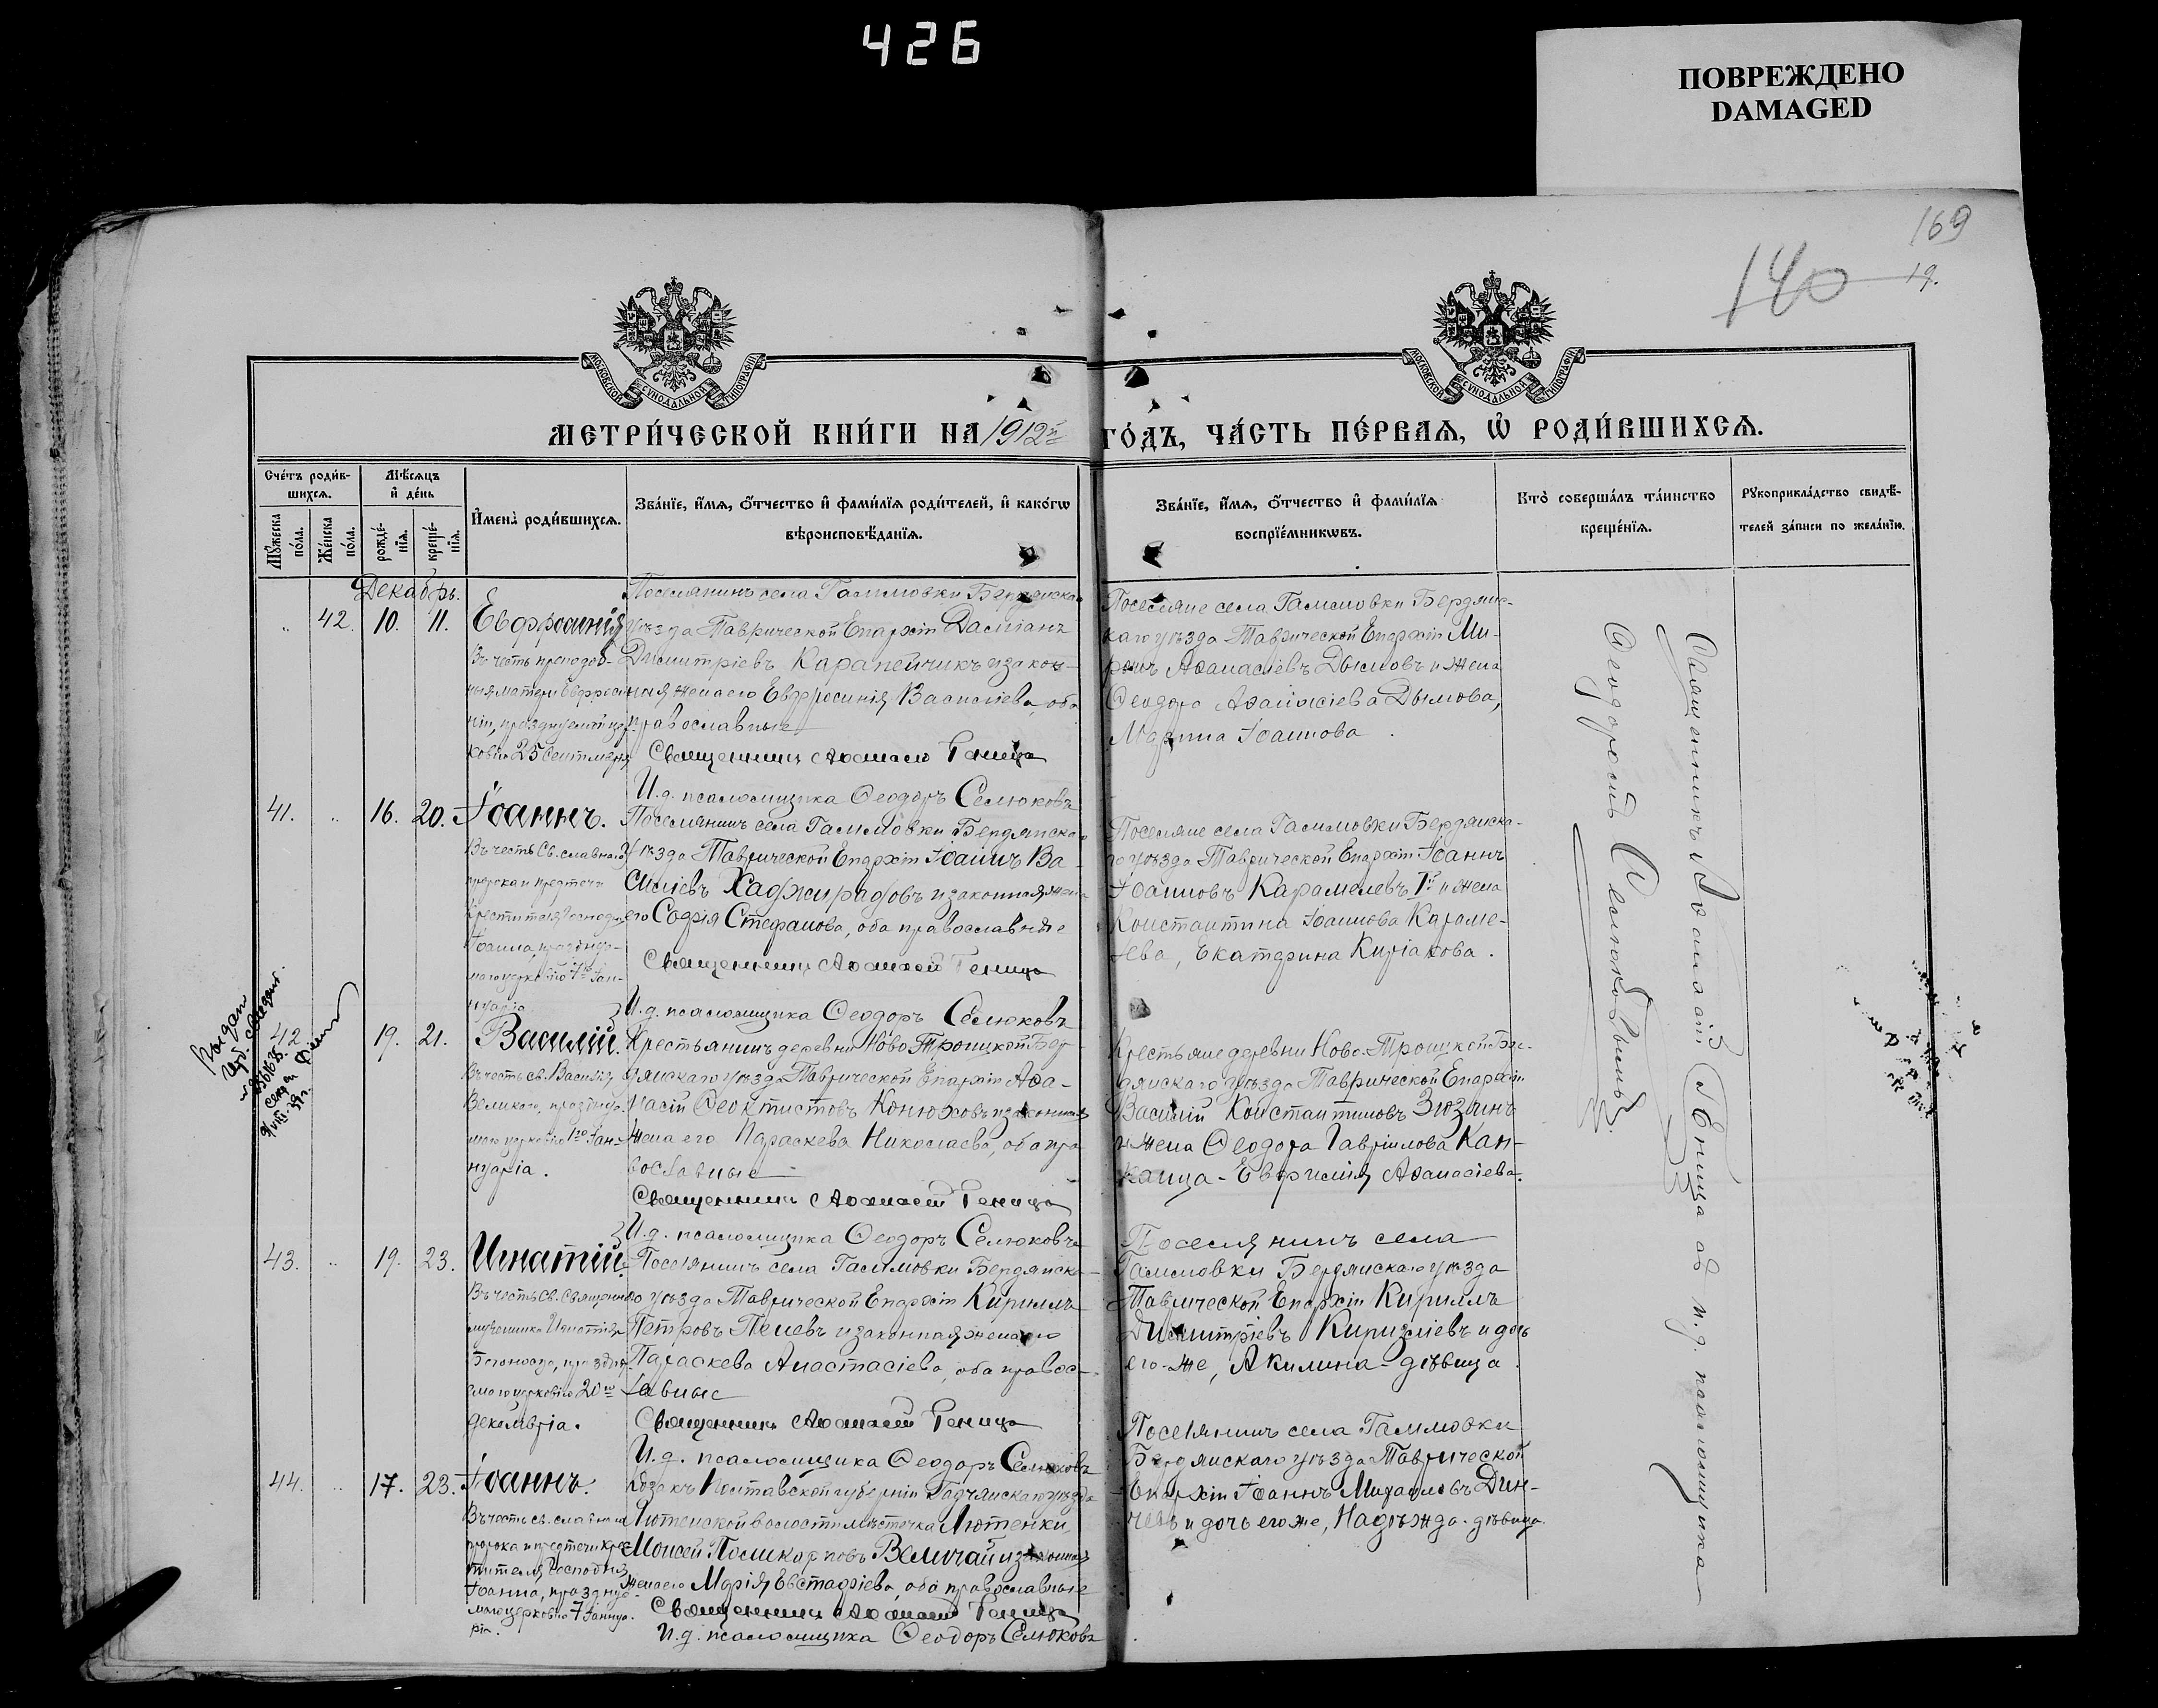 426
ПОВРЕЖДЕНО
DAMAGED
169
140
19.
МОСКОВСКОЙ СѴНОДАЛЬНОЙ ТИПОГРАФІИ
МОСКОВСКОЙ СѴНОДАЛЬНОЙ ТИПОГРАФІИ
МЕТРИ́ЧЕСКОЙ КНИ́ГИ НА 1912й ГО́ДЪ, ЧА́СТЬ ПЕ́РВАЯ, Ѡ҆ РОДИ́ВШИХСЯ.
Сче́тъ роди́в-
шихся.
Мѣ́сяцъ
и҆ де́нь
Мꙋ́жеска
по́ла.
Же́нска
по́ла.
рожде́-
нїя.
креще́-
нїя.
И҆мена̀ роди́вшихся.
Зва́нїе, и҆́мя, ѻ҆́тчество и҆ фами́лїя роди́телей, и҆ како́гѡ
вѣроисповѣ́данїя.
Зва́нїе, и҆́мя, ѻ҆́тчество и҆ фами́лїя
воспрїе́мникѡвъ.
Кто̀ соверша́лъ та́инство
креще́нїя.
Рꙋкоприкла́дство свидѣ́-
телей за́писи по жела́нїю.
Декабрь.
42. 10. 11. Евфросинія
Въ честь преподоб-
ныя матери Евфроси
ніи, празднуемой цер-
ковію 25 Сентября
Поселянинъ села Гамовки Бердянска
уѣзда Таврической Епархіи Даміанъ
Димитріевъ Карапейчикъ и закон-
ная жена его Евфросинія Василіева, оба
православные
Священникъ Аѳанасій Геница
И. д. псаломщика Ѳеодоръ Селюковъ
Поселяне села Гамовки Бердянс-
каго уѣзда Таврической Епархіи Ми-
ронъ Аѳанасіевъ Дымовъ и жена
Ѳеодора Аѳанасіева Дымова,
Марина Іоаннова.
41. 16. 20. Іоаннъ.
Въ честь Св. славнаго
пророка и предтечи
Крестителя Господня
Іоанна, празднуе-
маго церковію 7го Ян-
нуарія
Поселянинъ села Гамовки Бердянска
уѣзда Таврической Епархіи Іоаннъ Ва-
силіевъ Хаджирадовъ и законная жена
его Софія Стефанова, оба православные
Священникъ Аѳанасій Геница
И. д. псаломщика Ѳеодоръ Селюковъ
Поселяне села Гамовки Бердянска-
го уѣзда Таврической Епархіи Іоаннъ
Іоанновъ Карамелевъ 1й и жена
Константина Іоаннова Караме-
лева, Екатерина Киріакова.
42 19. 21. Василій.
Въ честь св. Василія
Великаго, праздну-
маго церковію 1го Ян-
нуарія.
Крестьянинъ деревни Ново-Троицкой Бер-
дянскаго уѣзда Таврической Епархіи Аѳа-
насій Ѳеоктистовъ Конюховъ и законная
жена его Параскева Николаева, оба пра
вославные
Священникъ Аѳанасій Геница
И. д. псаломщика Ѳеодоръ Селюковъ
Крестьяне деревни Ново-Троицкой Бер-
дянскаго уѣзда Таврической Епархіи
Василій Константиновъ Зюзинъ
и жена Ѳеодора Гавріилова Кан-
каица - Евфимія Аѳанасіева.
43. 19. 23. Игнатій.
Въ честь Св. Священно
мученика Игнатія
Богоносца, праздну-
емаго церковію 20го
декемврія.
Поселянинъ села Гамовки Бердянска-
го уѣзда Таврической Епархіи Кириллъ
Петровъ Пеневъ и законная жена его
Параскева Анастасіева, оба правос-
лавные
Священникъ Аѳанасій Геница
И. д. псаломщика Ѳеодоръ Селюковъ
Поселянинъ села
Гамовки Бердянскаго уѣзда
Таврической Епархіи Кириллъ
Димитріевъ и дочь
его-же, Акилина - дѣвица.
44. 17. 23. Іоаннъ.
Въ честь св. славнаго
пророка и предтечи Крес-
тителя Господня
Іоанна, праздну-
маго церковію 7 Яннуа-
рія.
Козакъ Полтавской губерніи Гадячскаго уѣзда
Лютенской волости мѣстечка Лютенки,
Моисей Поликарповъ Величай и законная
жена его Марія Евстафіева, оба православные
Священникъ Аѳанасій Геница
И. д. псаломщика Ѳеодоръ Селюковъ
Поселянинъ села Гамовки
Бердянскаго уѣзда Таврической
Епархіи Іоаннъ Михаиловъ Дин-
чевъ и дочь его же, Надѣжда - дѣвица.
Священникъ Аѳанасій Геница съ и. д. псаломщика
Ѳеодоромъ Селюковымъ.